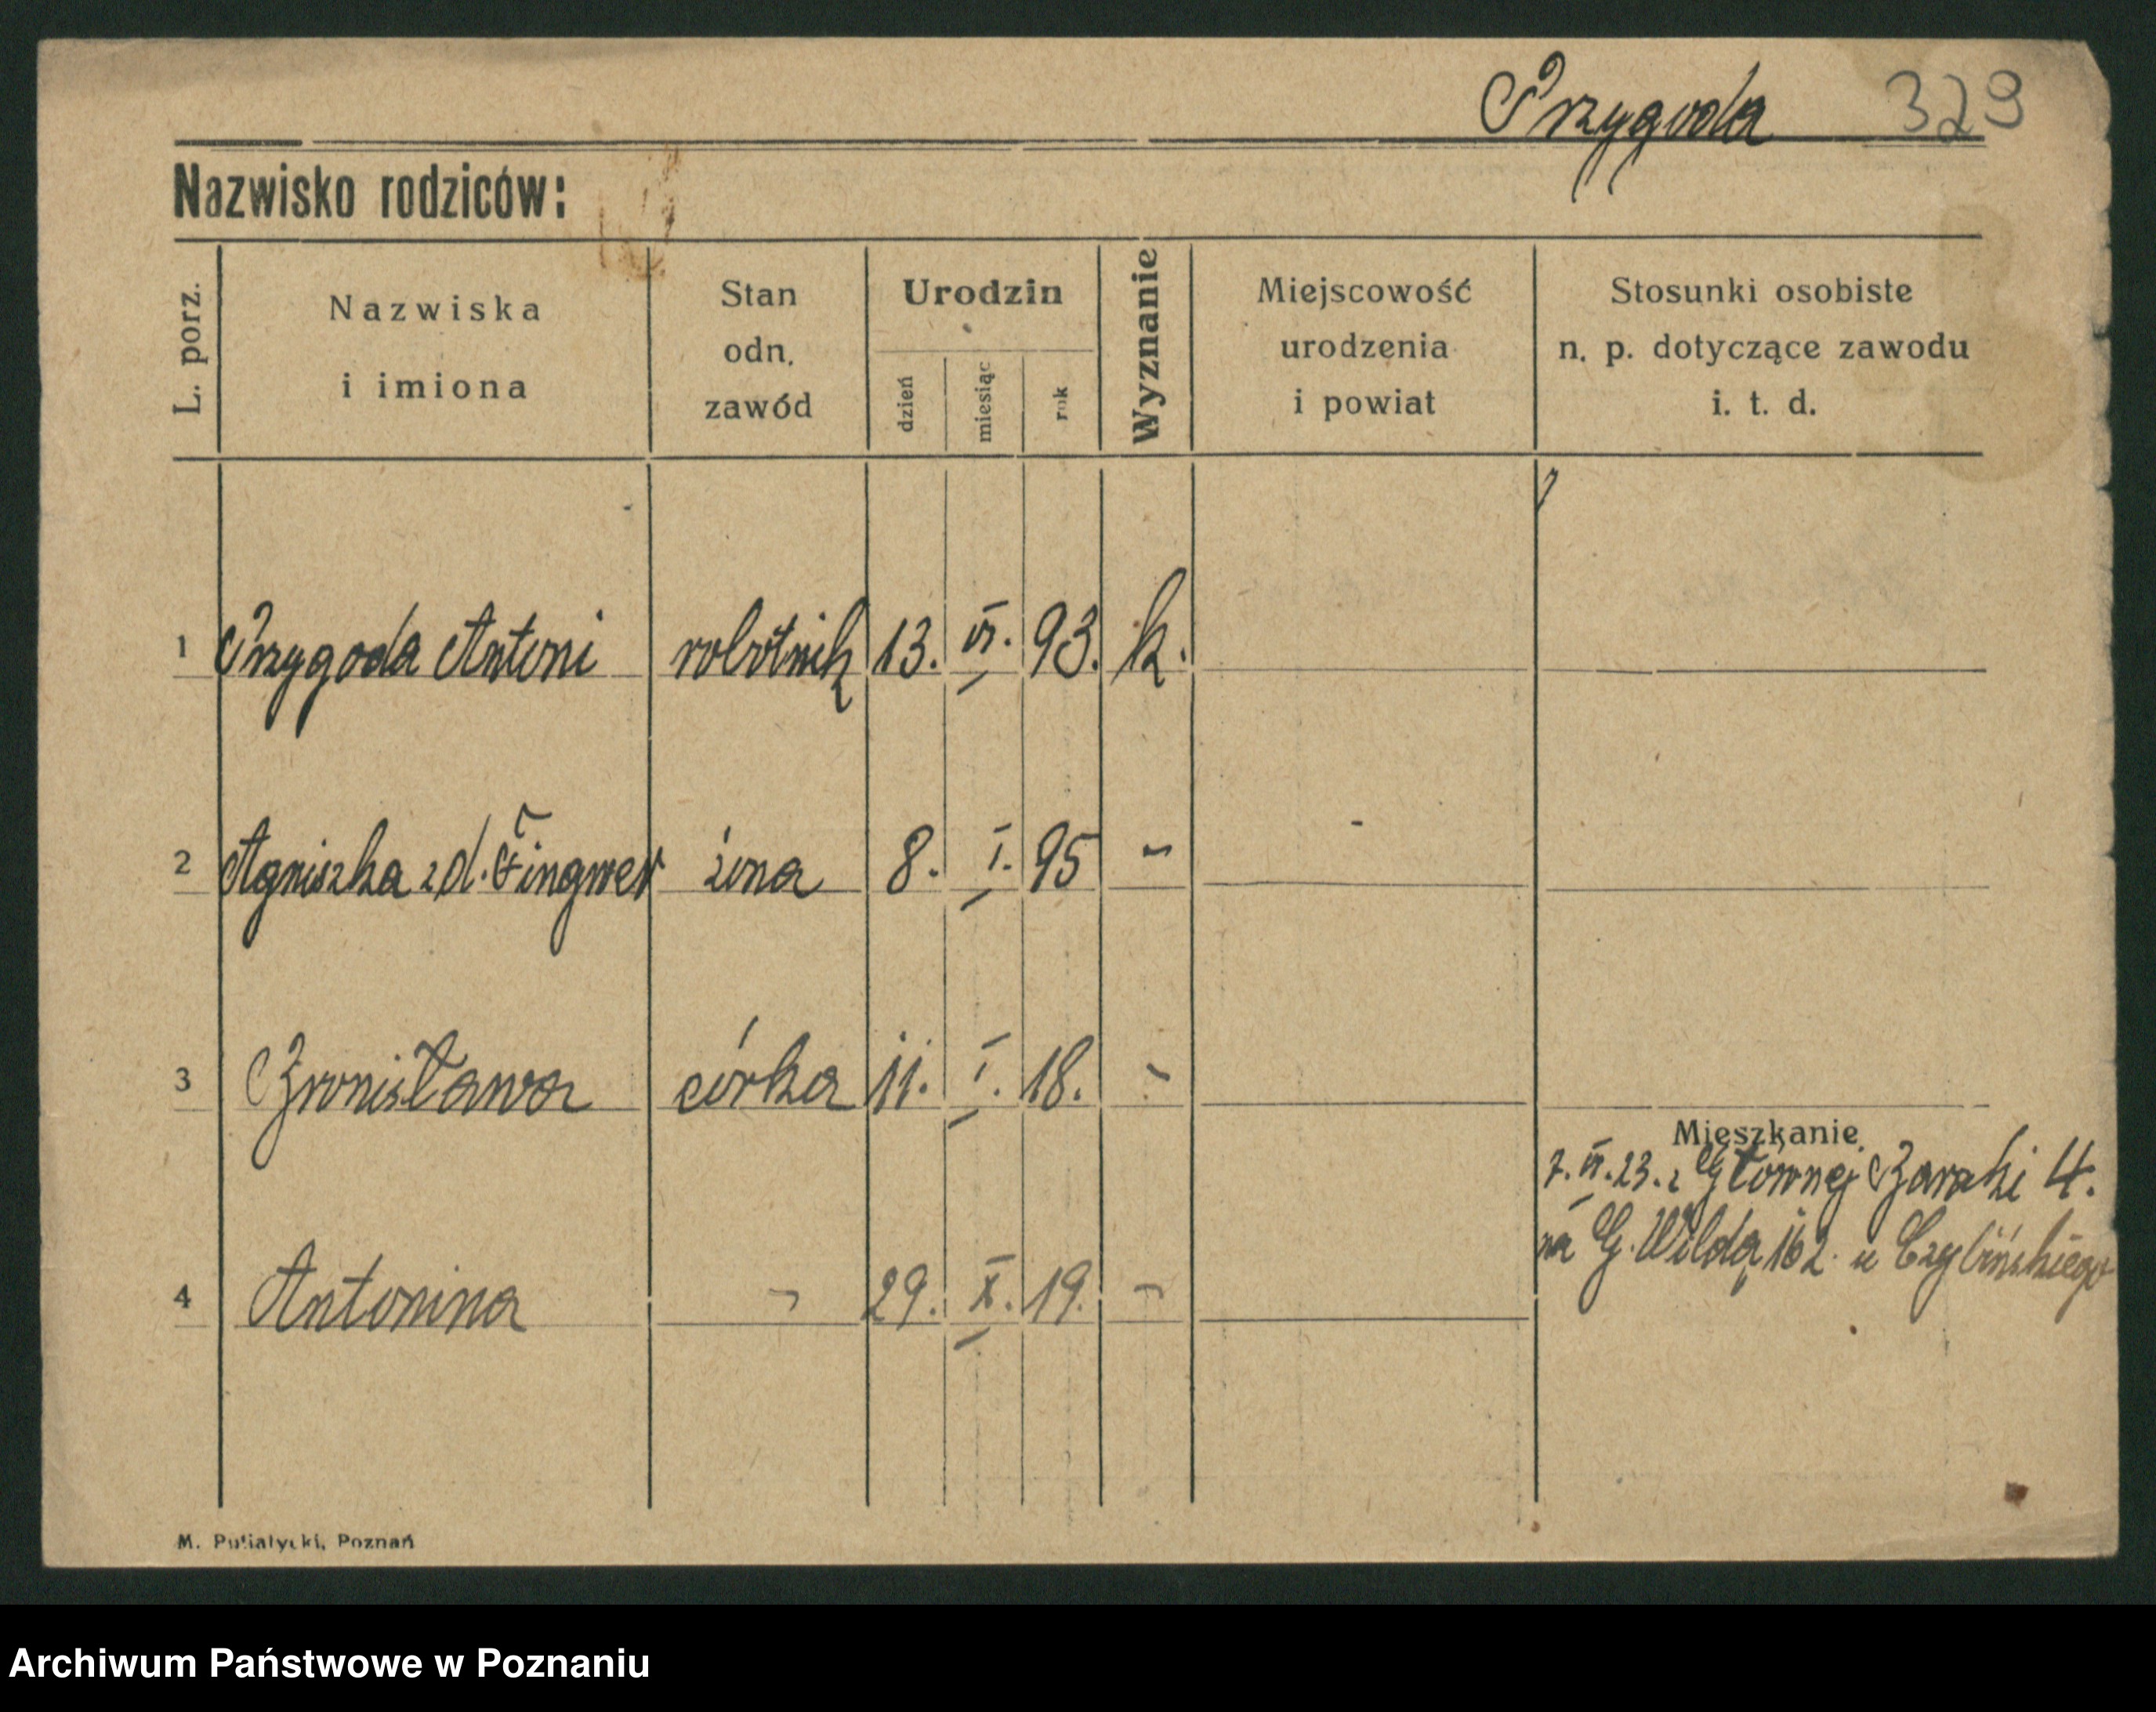 Przygoda 329
Nazwisko rodziców:
L. porz.
Nazwiska
i imiona
Stan
odn.
zawód
Urodzin
dzień
miesiąc
rok
Wyznanie
Miejscowość
urodzenia
i powiat
Stosunki osobiste
n. p. dotyczące zawodu
i. t. d.
1 Przygoda Antoni robotnik 13. VI. 93. k.
2 Agniszka z d. Fingwer żona 8. I. 95 -
3 Bronisława córka 11. I. 18. -
Mieszkanie
7. VI. 23. z Głównej Baraki 4.
na G. Wildą 162. u
4 Antonina - 29. X. 19. -
M. Putiatycki, Poznań
Archiwum Państwowe w Poznaniu